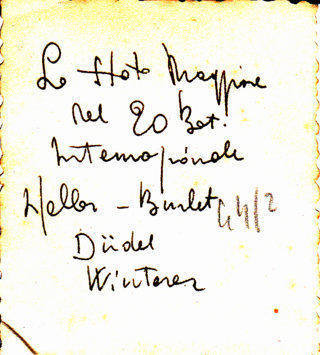 Lo Stato Maggiore
del 20 Bat.
Internazionale
Heller - Burlet 44/2
Düdel
Winterer